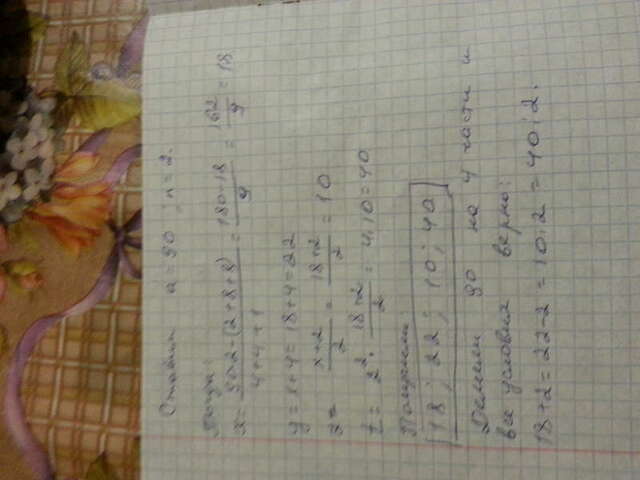 Ставим a = 90 ; n = 2.
Тогда:
x = \frac{90·2-(2+8+8)}{4+4+1} = \frac{180-18}{9} = \frac{162}{9} = 18
y = x+4 = 18+4 = 22
z = \frac{x+2}{2} = \frac{18+2}{2} = 10
t = 2² · \frac{18+2}{2} = 4·10 = 40
Получили:
18 ; 22 ; 10 ; 40
Делели 90 на 4 части и
все условия верно:
18+2 = 22-2 = 10·2 = 40:2.